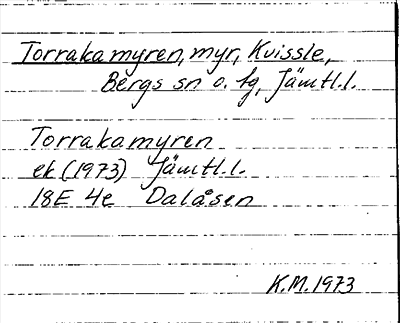 Torrakamyren, myr, Kvissle,
Bergs sn o. tg, Jämtl.l.
Torrakamyren
ek (1973) Jämtl.l.
18E 4e Dalåsen
K.M. 1973